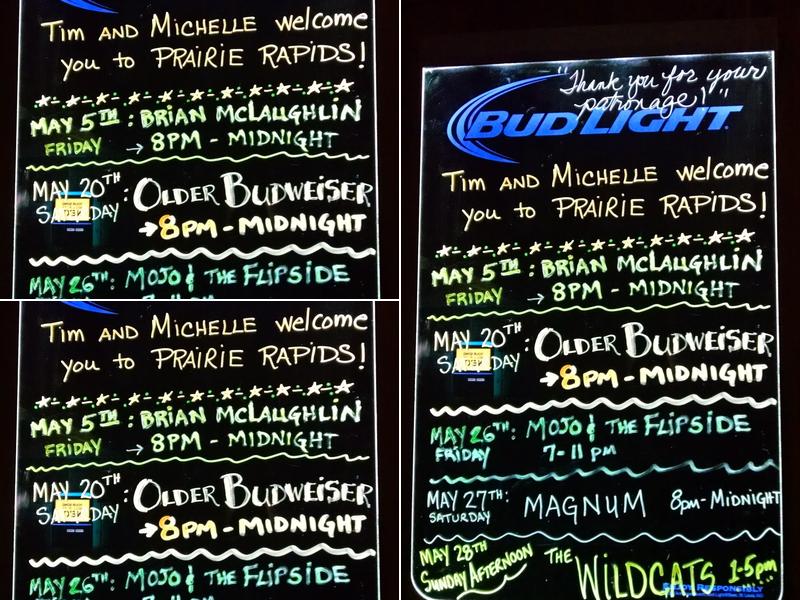 Tim AND MICHELLE welcome
you to PRAIRIE RAPIDS!
MAY 5TH : BRIAN MCLAUGHLIN
FRIDAY → 8PM - MIDNIGHT
MAY 20TH : OLDER BUDWEISER
SATURDAY → 8PM - MIDNIGHT
MAY 26TH: MOJO & THE FLIPSIDE
Tim AND MICHELLE welcome
you to PRAIRIE RAPIDS!
MAY 5TH : BRIAN MCLAUGHLIN
FRIDAY → 8PM - MIDNIGHT
MAY 20TH : OLDER BUDWEISER
SATURDAY → 8PM - MIDNIGHT
MAY 26TH: MOJO & THE FLIPSIDE
"Thank you for your
patronage!"
BUD LIGHT
Tim AND MICHELLE welcome
you to PRAIRIE RAPIDS!
MAY 5TH : BRIAN MCLAUGHLIN
FRIDAY → 8PM - MIDNIGHT
MAY 20TH : OLDER BUDWEISER
SATURDAY → 8PM - MIDNIGHT
MAY 26TH: MOJO & THE FLIPSIDE
FRIDAY 7-11 PM
MAY 27TH: MAGNUM 8pm-MIDNIGHT
SATURDAY
MAY 28TH THE WILDCATS 1-5pm
SUNDAY AFTERNOON
ENJOY RESPONSIBLY